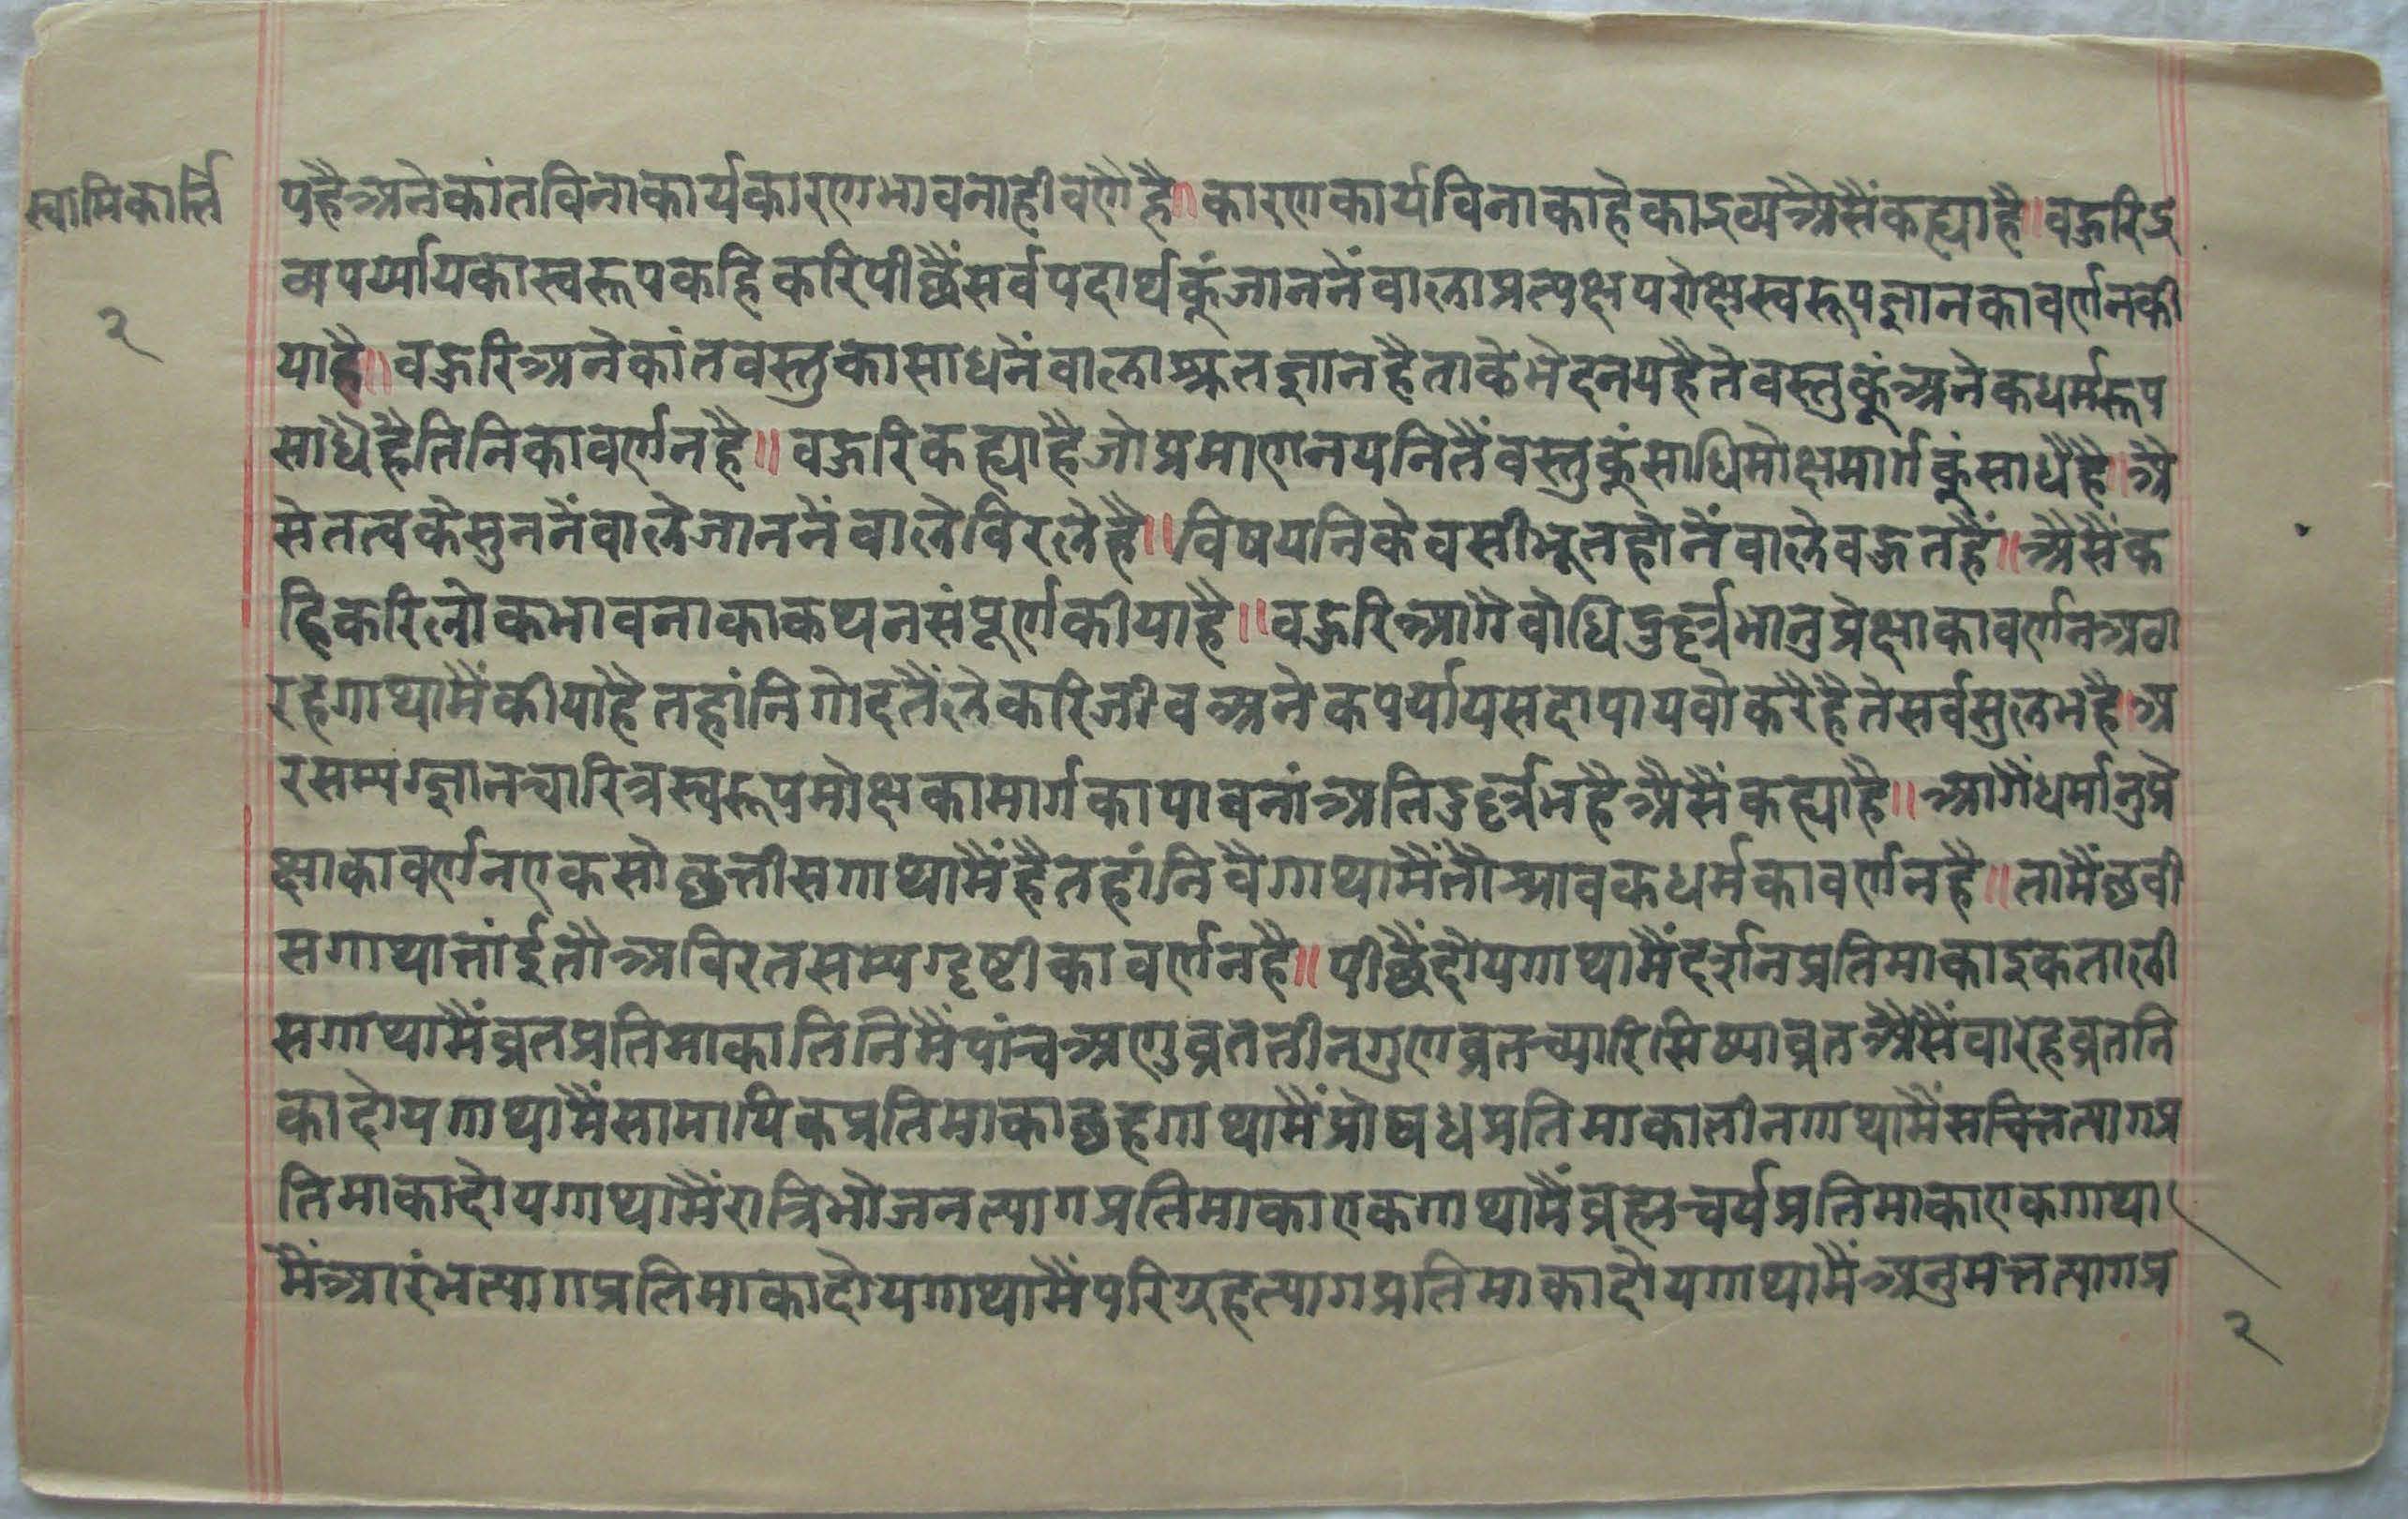 स्वामिकार्त्ति
२
पहै अनेकांतविनाकार्यकारणभावनाहीवणैहै॥ कारणकार्यविनाकाहेकाद्रव्य अैसैंकह्याहै॥ बहुरिद्र
व्यपर्य्यायकास्वरूपकहिकरिपीछैंसर्वपदार्थकूंजाननैंवालाप्रत्यक्षपरोक्षस्वरूपज्ञानकावर्णनकी
याहै॥ बहुरिअनेकांतवस्तुकासाधनैंवालाश्रुतज्ञानहैताकेभेदनयहैतेवस्तुकूंअनेकधर्मरूप
साधैहैतिनिकावर्णनहै॥ बहुरिकह्याहैजोप्रमाणनयनितैंवस्तुकूंसाधिमोक्षमार्गकूंसाधैहै॥ अै
सेतत्वकेसुननैंवालेजाननैंवालेविरलेहै॥ विषयनिकेवसीभूतहोनैंवालेबहुतहैं॥ अैसैंक
हिकरिलोकभावनाकाकथनसंपूर्णकीयाहै॥ बहुरिआगैबोधिदुर्ल्लभानुप्रेक्षाकावर्णनअठा
रहगाथामैंकीयाहैतहांनिगोदतैंलेकरिजीवअनेकपर्यायसदापायवोकरैहैतेसर्वसुलभहै॥ अ
रसम्यग्ज्ञानचारित्रस्वरूपमोक्षकामार्गकापावनांअतिदुर्ल्लभहैअैसैंकह्याहै॥ आगैंधर्मानुप्रे
क्षाकावर्णनएकसोछत्तीसगाथामैंहैतहांनिवैगाथामैंतौश्रावकधर्मकावर्णनहै॥ तामैंछवी
सगाथातांईतौअविरतसम्यग्दृष्टीकावर्णनहै॥ पीछैंदोयगाथामैंदर्शनप्रतिमाकाइकताली
सगाथामैंव्रतप्रतिमाकातिनिमैंपांचअणुव्रततीनगुणव्रतच्यारिसिष्याव्रतअैसैंबारहव्रतनि
कादोयगाथामैंसामायिकप्रतिमाकाछहगाथामैंप्रोषधप्रतिमाकातीनगाथामैंसचित्तत्यागप्र
तिमाकादोयगाथामैंरात्रिभोजनत्यागप्रतिमाकाएकगाथामैंब्रह्मचर्यप्रतिमाकाएकगाथा
मैंआरंभत्यागप्रतिमाकादोयगाथामैंपरिग्रहत्यागप्रतिमाकादोयगाथामैंअनुमत्तत्यागप्र
२